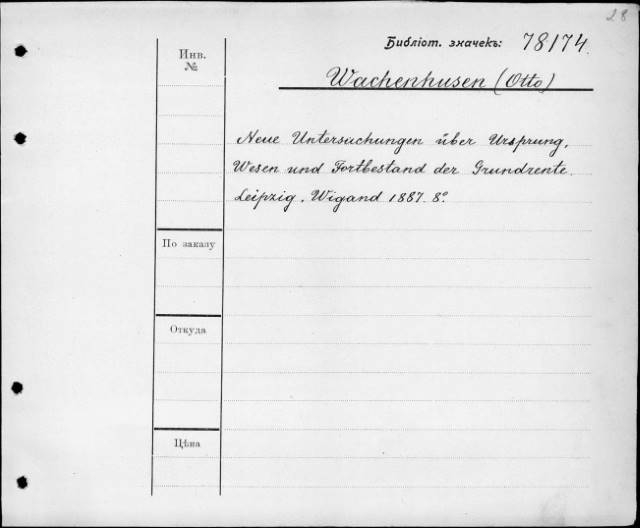 28
Библіот. значекъ: 78174.
Инв.
№
Wachenhusen (Otto)
Neue Untersuchungen über Ursprung,
Wesen und Fortbestand der Grundrente.
Leipzig, Wigand 1887. 8°.
По заказу
Откуда
Цѣна